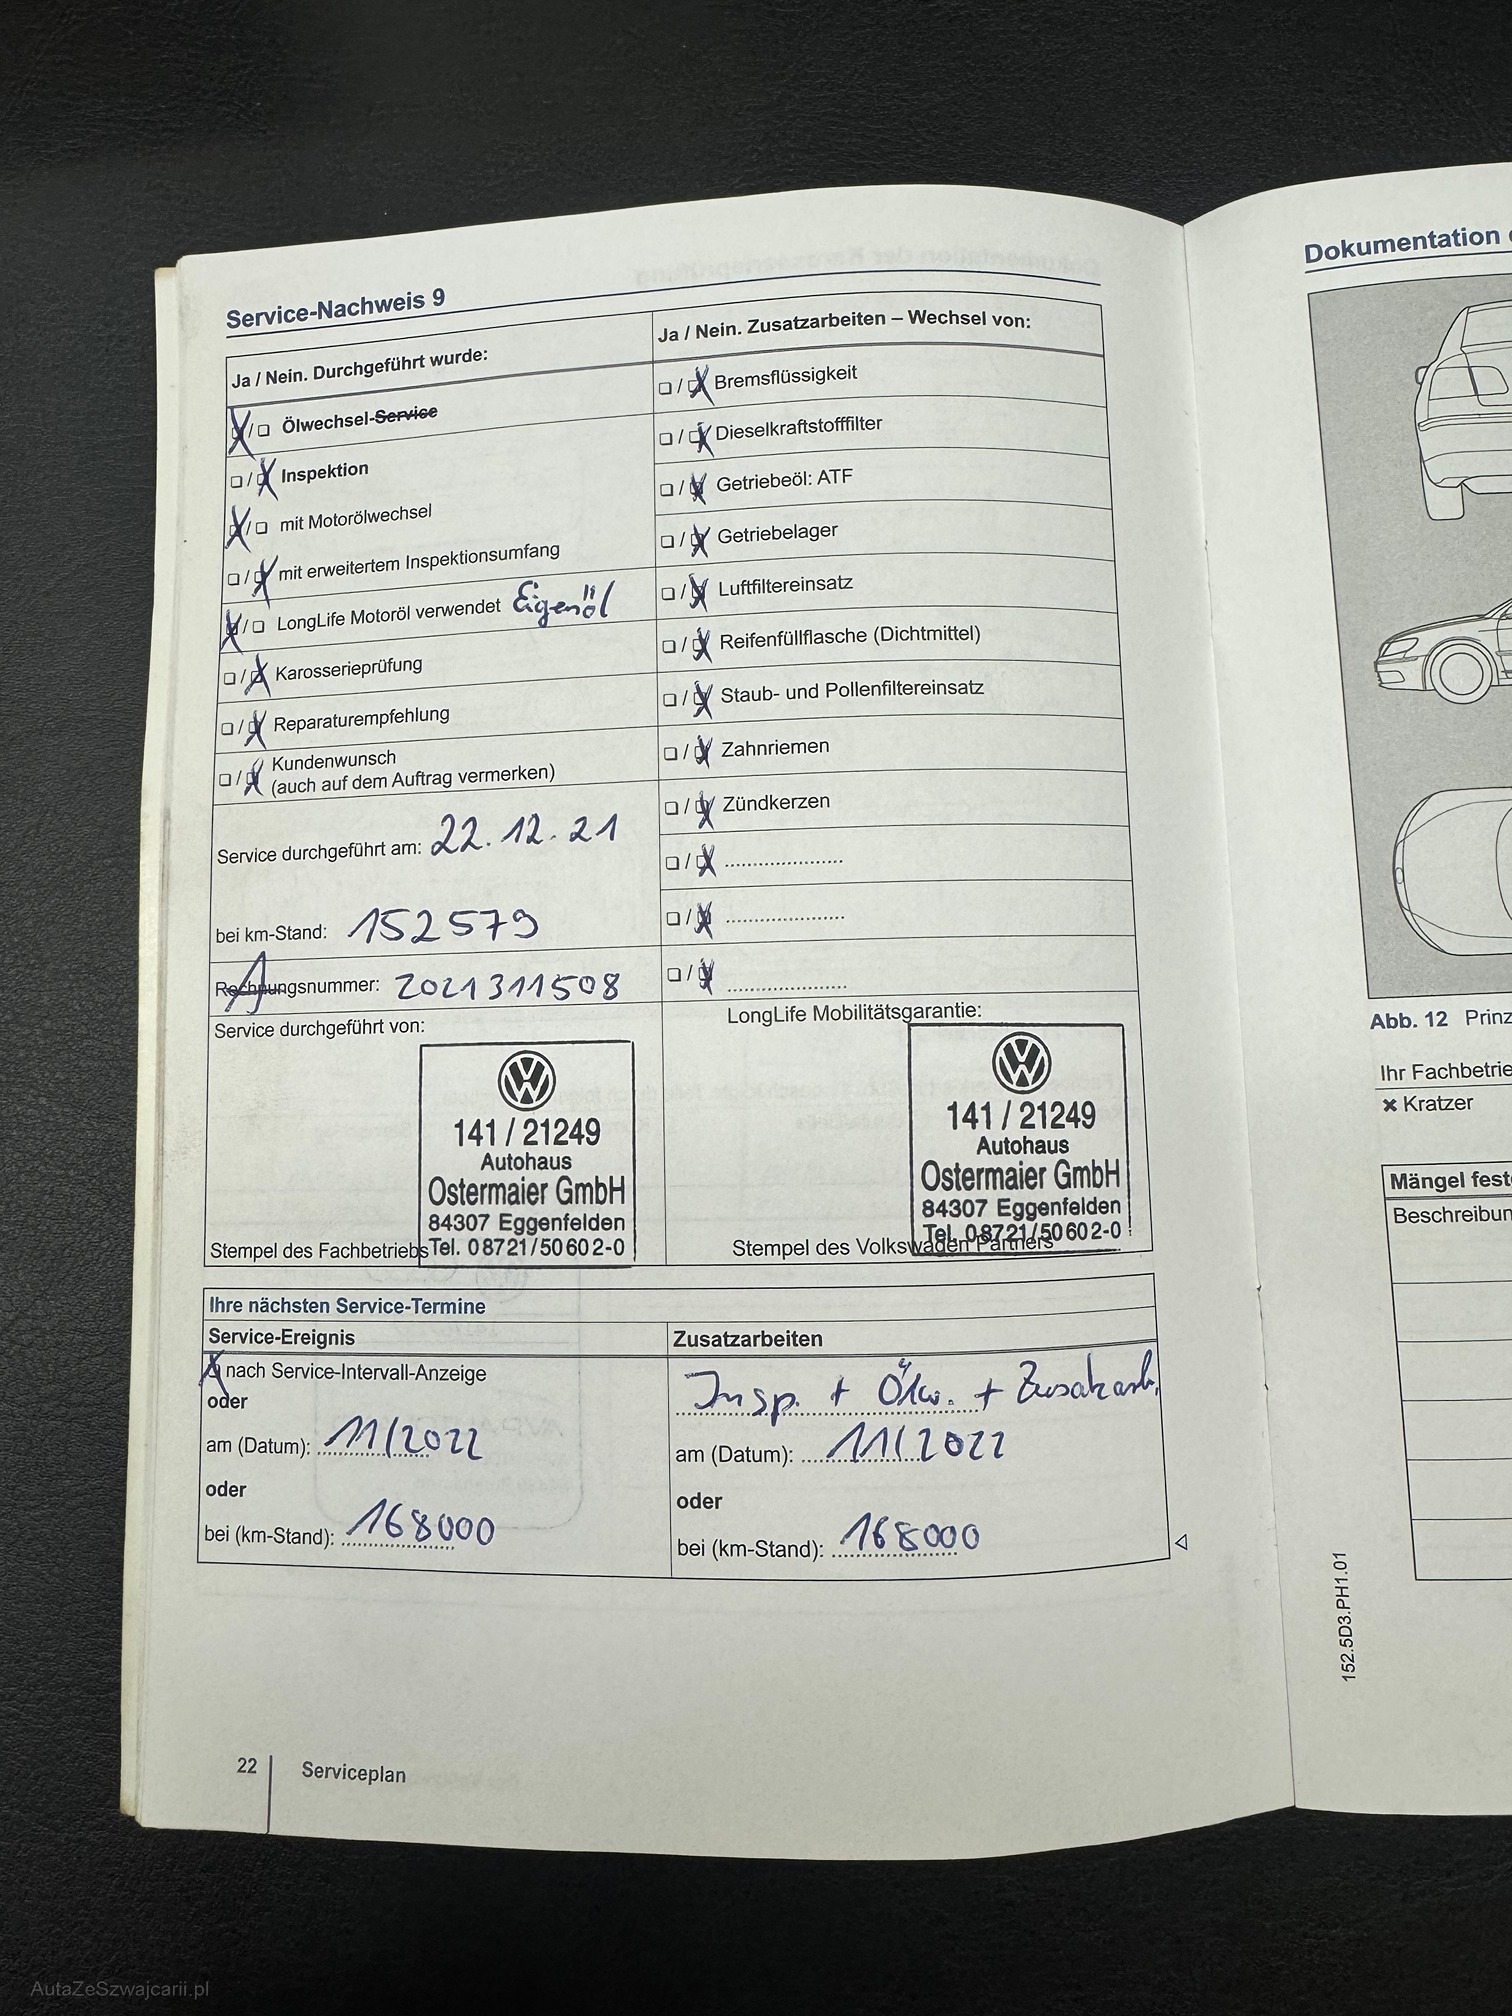 Service-Nachweis 9
Ja / Nein. Durchgeführt wurde:
Ölwechsel-Service
Inspektion
mit Motorölwechsel
mit erweitertem Inspektionsumfang
LongLife Motoröl verwendet Eigenöl
Karosserieprüfung
Reparaturempfehlung
Kundenwunsch
(auch auf dem Auftrag vermerken)
Service durchgeführt am: 22.12.21
bei km-Stand: 152579
Rechnungsnummer: A 2021311508
Service durchgeführt von:
141 / 21249
Autohaus
Ostermaier GmbH
84307 Eggenfelden
Tel. 08721/50602-0
Stempel des Fachbetriebs
Ja / Nein. Zusatzarbeiten – Wechsel von:
Bremsflüssigkeit
Dieselkraftstofffilter
Getriebeöl: ATF
Getriebelager
Luftfiltereinsatz
Reifenfüllflasche (Dichtmittel)
Staub- und Pollenfiltereinsatz
Zahnriemen
Zündkerzen
LongLife Mobilitätsgarantie:
141 / 21249
Autohaus
Ostermaier GmbH
84307 Eggenfelden
Tel. 08721/50602-0
Stempel des Volkswagen Partners
Ihre nächsten Service-Termine
Service-Ereignis
nach Service-Intervall-Anzeige
oder
am (Datum): 11/2022
oder
bei (km-Stand): 168000
Zusatzarbeiten
Insp. + Ölw. + Zusatzarb.
am (Datum): 11/2022
oder
bei (km-Stand): 168000
22
Serviceplan
Dokumentation
Abb. 12 Prinz
Ihr Fachbetrie
Kratzer
Mängel fest
Beschreibun
152.5D3.PH1.01
AutaZeSzwajcarii.pl